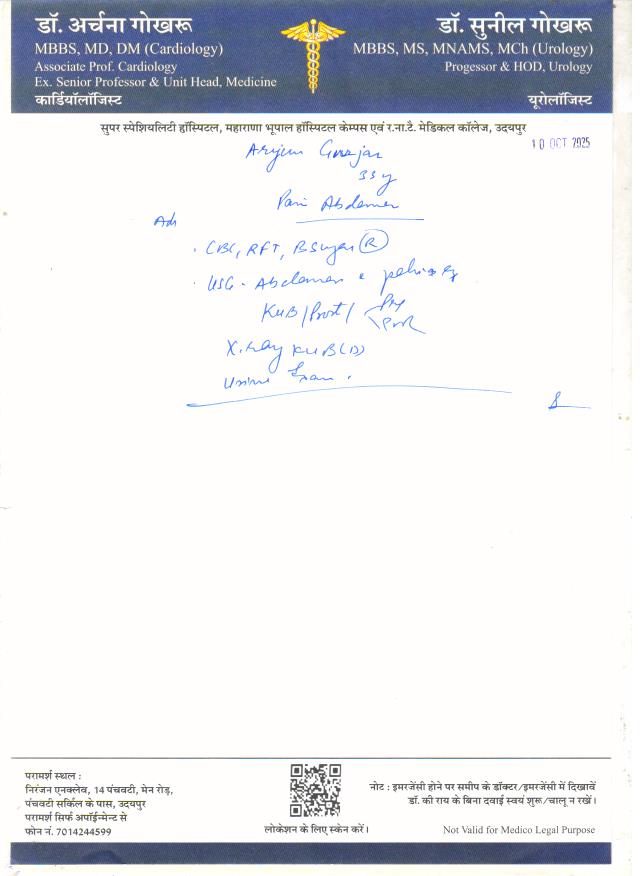 डॉ. अर्चना गोखरू
MBBS, MD, DM (Cardiology)
Associate Prof. Cardiology
Ex. Senior Professor & Unit Head, Medicine
कार्डियॉलॉजिस्ट
डॉ. सुनील गोखरू
MBBS, MS, MNAMS, MCh (Urology)
Progessor & HOD, Urology
यूरोलॉजिस्ट
सुपर स्पेशियलिटी हॉस्पिटल, महाराणा भूपाल हॉस्पिटल केम्पस एवं र.ना.टै. मेडिकल कॉलेज, उदयपुर
10 OCT 2025
Arjun Gurjar
35 y
Pain Abdomen
Adv
. CBC, RFT, BSugar (R)
. USG - Abdomen pelvis
KUB / Prost / Pre
Post
X.ray KUB
Urine Exam .
परामर्श स्थल :
निरंजन एनक्लेव, 14 पंचवटी, मेन रोड़,
पंचवटी सर्किल के पास, उदयपुर
परामर्श सिर्फ अपॉईन्मेन्ट से
फोन नं. 7014244599
लोकेशन के लिए स्केन करें।
नोट : इमरजेंसी होने पर समीप के डॉक्टर/इमरजेंसी में दिखावें
डॉ. की राय के बिना दवाई स्वयं शुरू/चालू न रखें।
Not Valid for Medico Legal Purpose